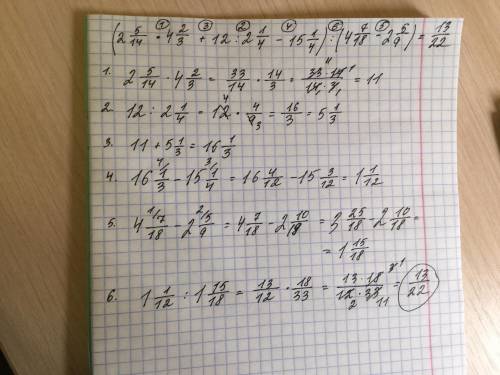 (2 5/14 · 4 2/3 + 12 : 2 1/4 − 15 1/4) : (4 7/18 − 2 5/9) = 13/22
① ③ ② ④ ⑥ ⑤
1. 2 5/14 · 4 2/3 = 33/14 · 14/3 = 33·14/14·3 = 11
2. 12 : 2 1/4 = 12 · 4/9 = 16/3 = 5 1/3
3. 11 + 5 1/3 = 16 1/3
4. 16 1/3 − 15 1/4 = 16 4/12 − 15 3/12 = 1 1/12
5. 4 7/18 − 2 5/9 = 4 7/18 − 2 10/18 = 3 25/18 − 2 10/18 =
= 1 15/18
6. 1 1/12 : 1 15/18 = 13/12 · 18/33 = 13·18/12·33 = 13/22